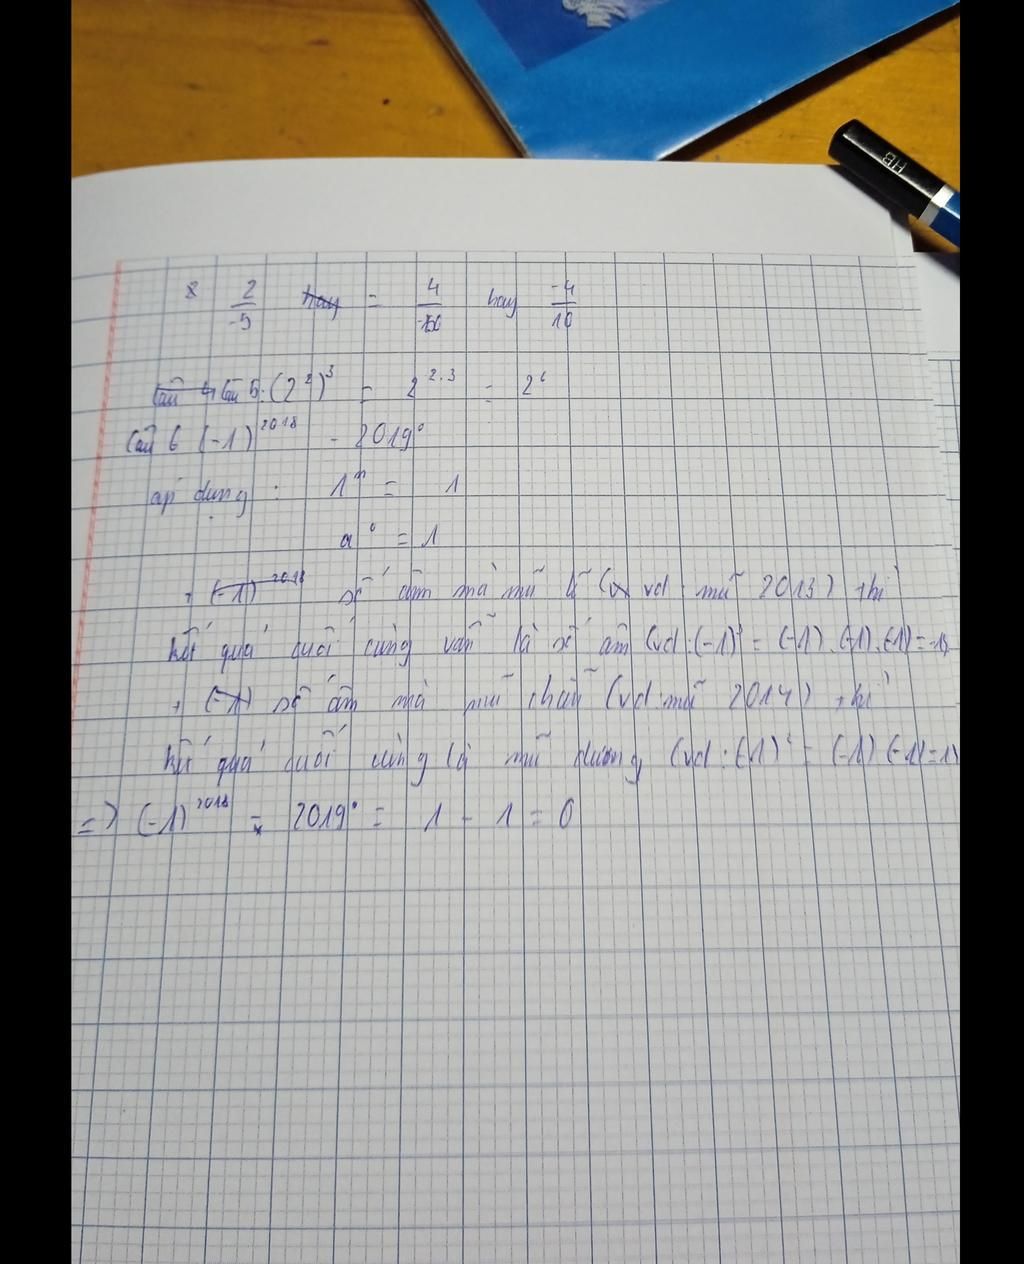 HB
2/-5 = 4/-10 hay -4/10
Câu 5: (2²)³ = 2^2.3 = 2⁶
Câu 6 (-1)^2018 - 2019⁰
áp dụng : 1ⁿ = 1
a⁰ = 1
+ số âm mà mũ lẻ (vd: mũ 2013) thì
kết quả cuối cùng vẫn là số âm (vd: (-1)³ = (-1).(-1).(-1) = -1)
+ số âm mà mũ chẵn (vd: mũ 2014) thì
kết quả cuối cùng là mũ dương (vd: (-1)² = (-1) (-1) = 1)
=> (-1)^2018 - 2019⁰ = 1 - 1 = 0